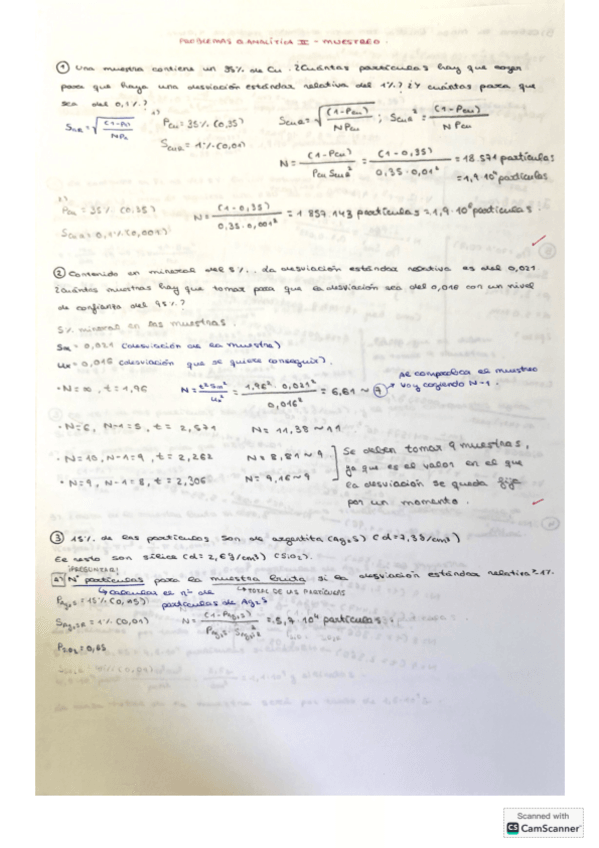 PROBLEMAS Q ANALÍTICA II - MUESTREO.
① Una muestra contiene un 35% de Cu. ¿Cuántas partículas hay que coger
para que haya una desviación estándar relativa del 1%? ¿Y cuántas para que
sea del 0,1%?
1) P_Cu = 35% (0,35)
S_CuR = 1% (0,01)
S_CuR = √((1-P_Cu)/(N P_Cu)) ; S_CuR² = (1-P_Cu)/(N P_Cu)
N = (1-P_Cu)/(P_Cu S_CuR²) = (1-0,35)/(0,35·0,01²) = 18.571 partículas
= 1,9·10⁴ partículas
2)
P_Cu = 35% (0,35)
S_CuR = 0,1% (0,001)
N = (1-0,35)/(0,35·0,001²) = 1 857 143 partículas = 1,9·10⁶ partículas.
② Contenido en mineral del 5%. La desviación estándar relativa es del 0,021
¿Cuántas muestras hay que tomar para que la desviación sea del 0,016 con un nivel
de confianza del 95%?
5% mineral en las muestras.
Sm = 0,021 (desviación de la muestra)
Ux = 0,016 (desviación que se quiere conseguir).
· N=∞, t=1,96
N = t²Sm²/Ux² = 1,96²·0,021²/0,016² = 6,61 ~ 7
se comprueba el muestreo
voy cogiendo N-1.
· N=6, N-1=5, t= 2,571 N= 11,38 ~ 11
· N=10, N-1=9, t= 2,262 N= 8,81 ~ 9
· N=9, N-1=8, t= 2,306 N= 9,16 ~ 9
Se deben tomar 9 muestras,
ya que es el valor en el que
la desviación se queda fija
por un momento.
③ 15% de las partículas son de argentita (Ag₂S) (d=7,3g/cm³)
El resto son sílice (d= 2,6g/cm³) (SiO₂).
¡PREGUNTAR!
a) Nº partículas para la muestra bruta si la desviación estándar relativa = 1%.
↳ calcular el nº de
partículas de Ag₂S
↳ TOTAL DE LAS PARTÍCULAS
P_Ag₂S = 15% (0,15)
S_Ag₂SR = 1% (0,01)
N = (1-P_Ag₂S)/(P_Ag₂S · S_Ag₂S²) = 5,7·10⁴ partículas
Scanned with
CS CamScanner